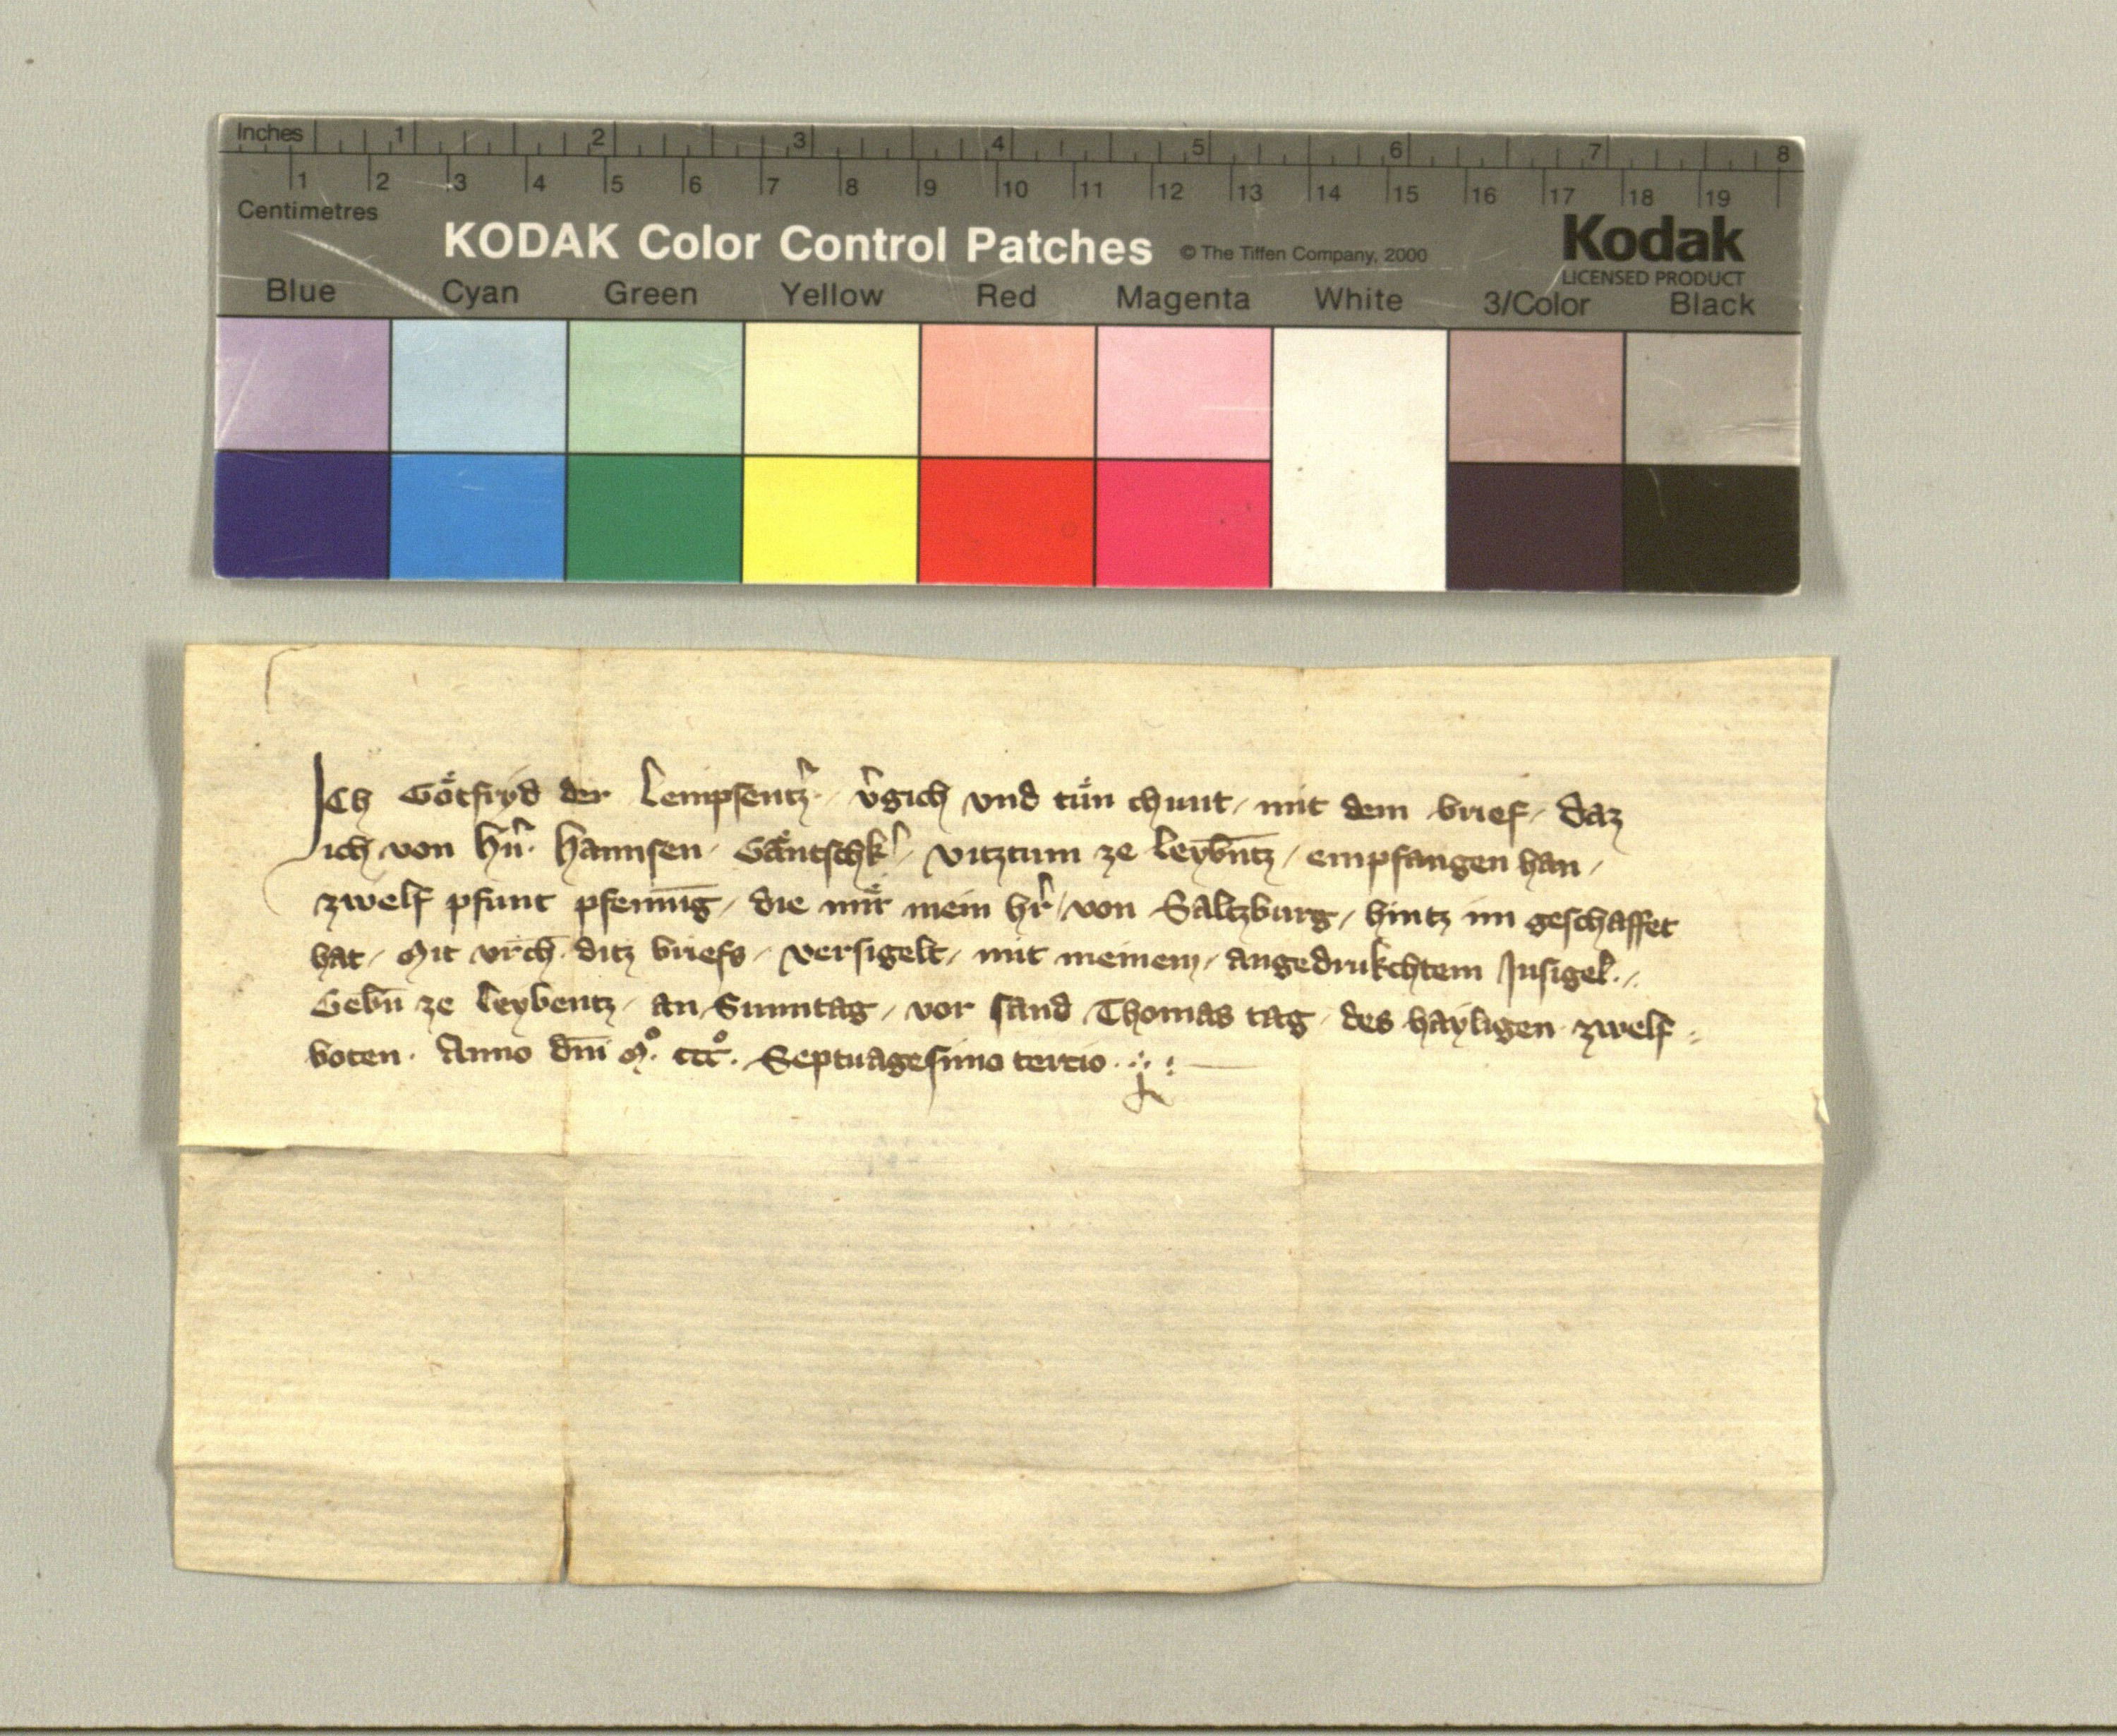 Inches 1 2 3 4 5 6 7 8
1 2 3 4 5 6 7 8 9 10 11 12 13 14 15 16 17 18 19
Centimetres
KODAK Color Control Patches © The Tiffen Company, 2000 Kodak
LICENSED PRODUCT
Blue Cyan Green Yellow Red Magenta White 3/Color Black
Ich Götfryd der Lempsentz̉ / v̉gich vnd tün chunt / mit dem brief / daz
ich von hn̉. Hannsen / Gäntschk̉ / vitztum ze Leybn̄tz / empfangen han /
zwelf pfunt pfenni̅g / die mir mein hr̉ / von Saltzburg / hintz im geschaffet
hat / Mit vrch̄ ditz briefs / versigelt / mit meinem / angedrukchtem Insigel ./.
Gebn̄ ze Leybentz / an Sunntag / vor sand Thomas tag / des hayligen zwelf =
boten . Anno dm̄ Mº. cccº. Septuagesimo tercio .